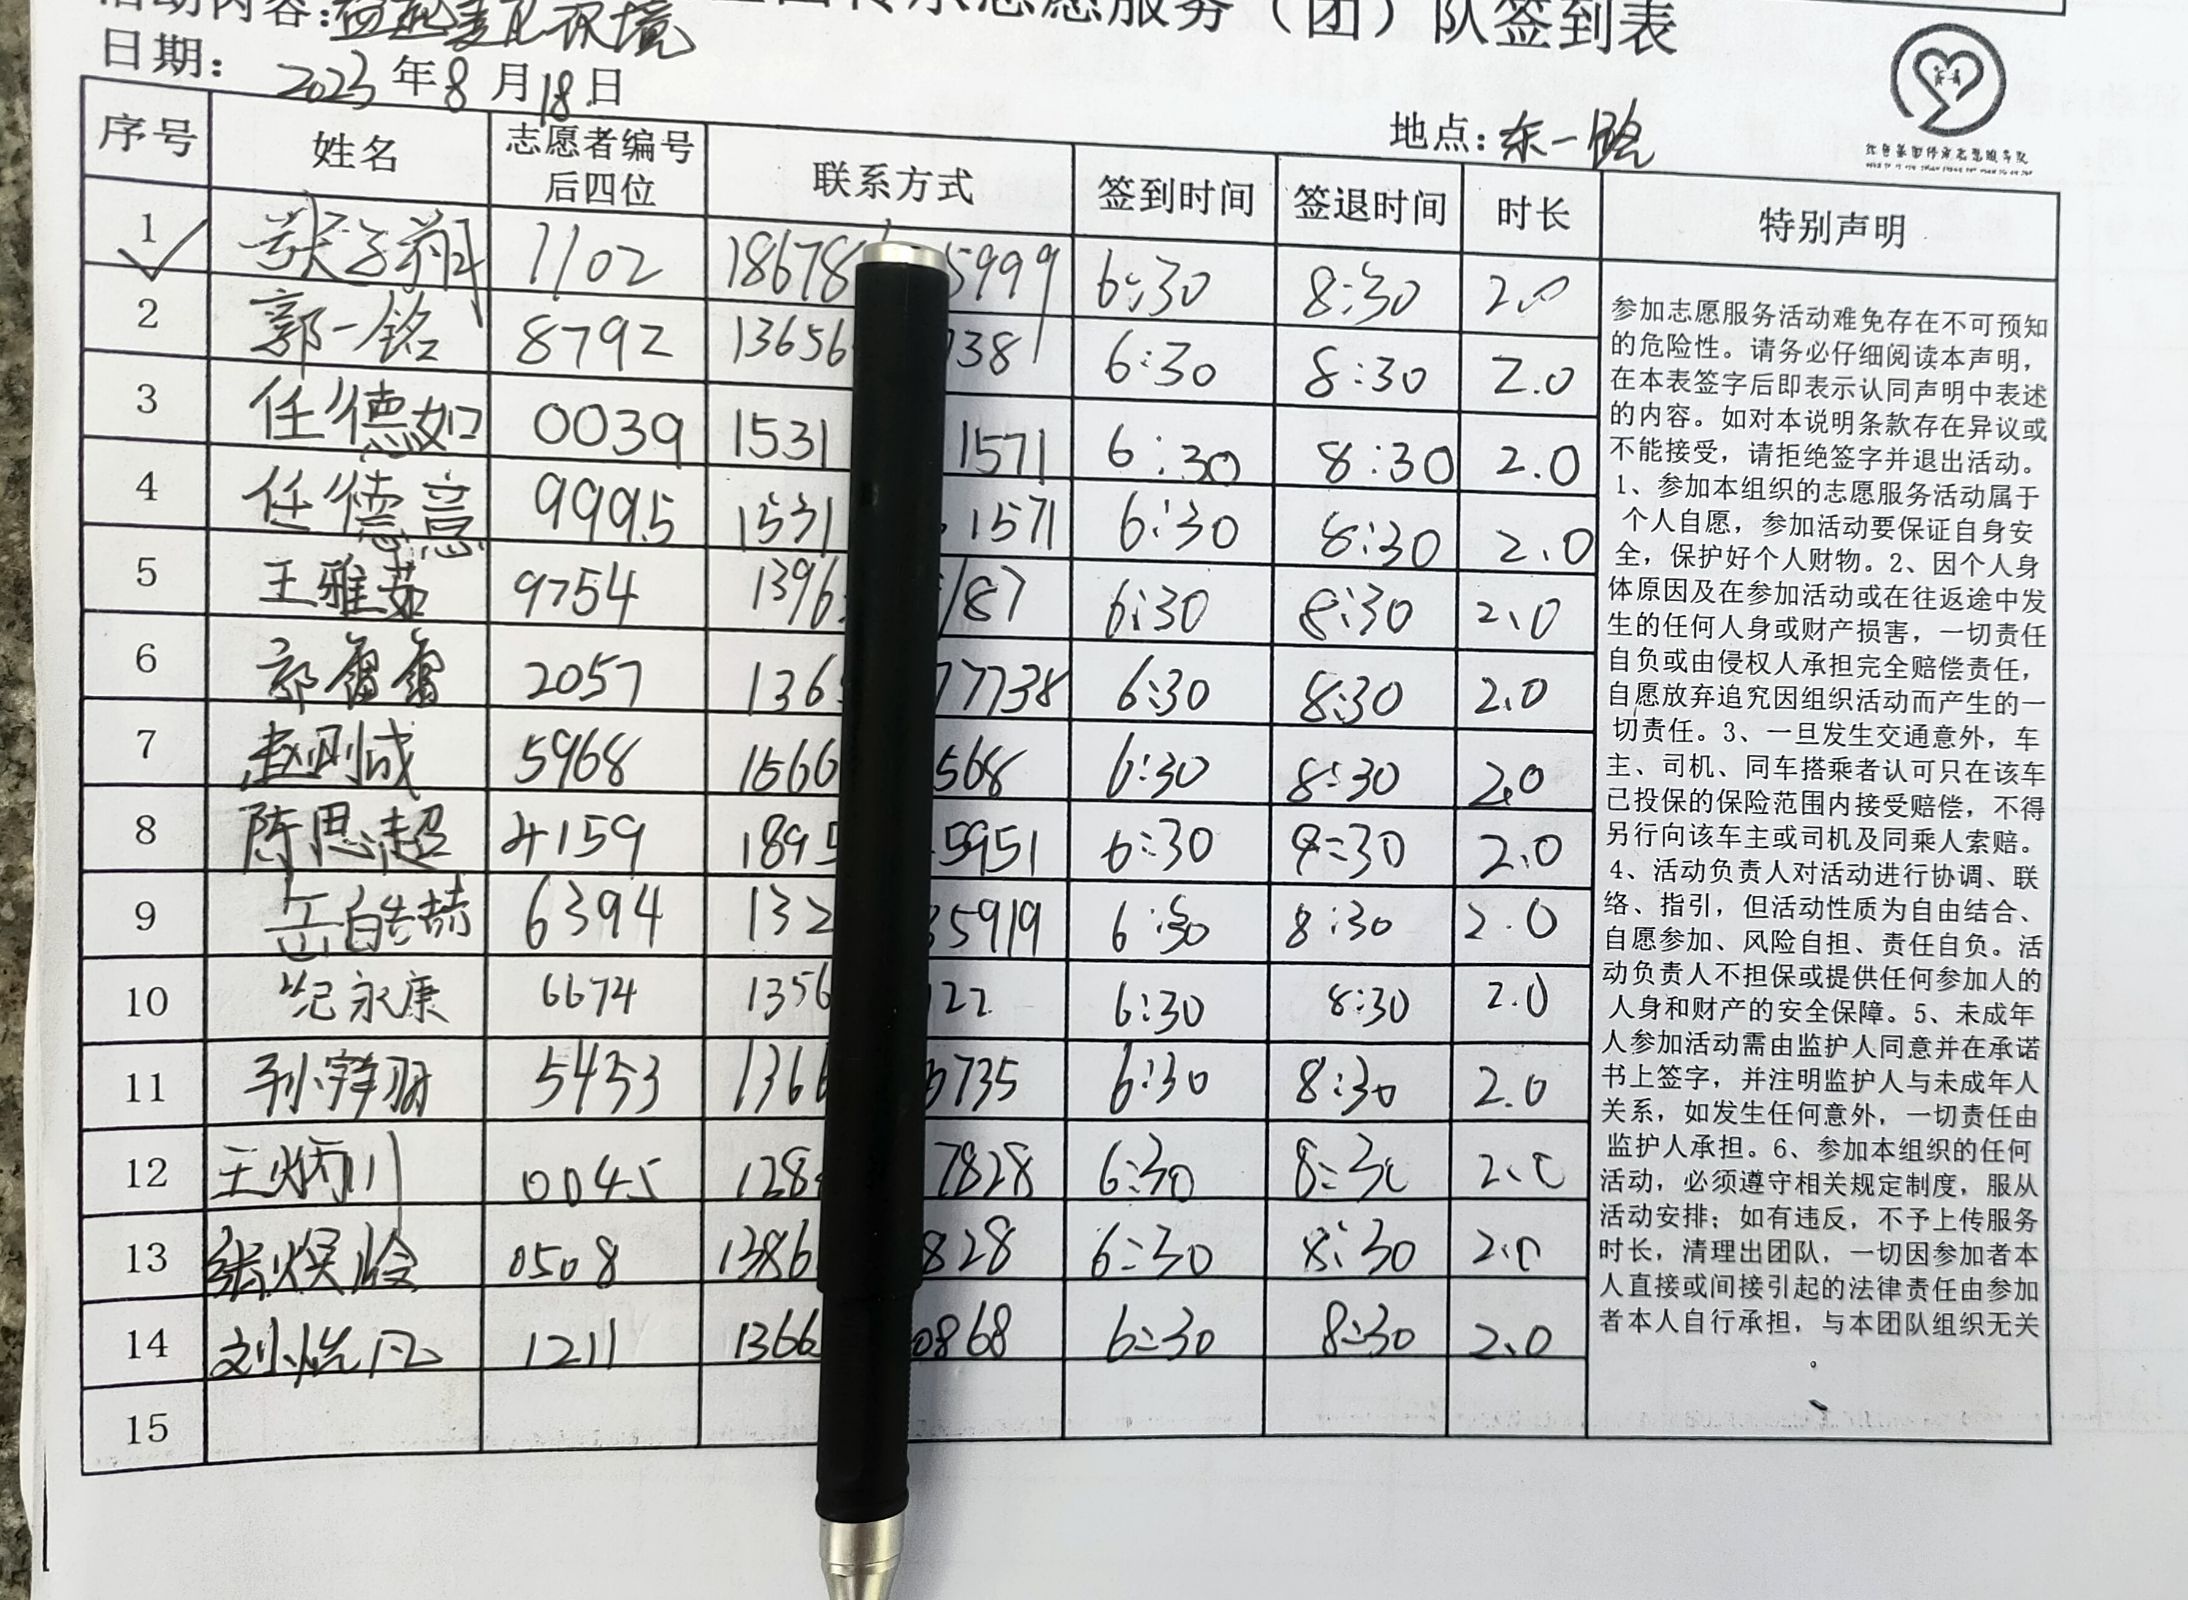 活动内容:
志愿服务（团）队签到表
日期: 2023 年 8 月 18 日
地点: 东一路
序号 姓名 志愿者编号后四位 联系方式 签到时间 签退时间 时长 特别声明
1 1102 18678 5999 6:30 8:30 2.0
2 郭一铭 8792 13656 381 6:30 8:30 2.0
3 任德如 0039 1531 1571 6:30 8:30 2.0
4 任德意 9995 1531 1571 6:30 8:30 2.0
5 王雅茹 9754 1396 187 6:30 8:30 2.0
6 郭雷雷 2057 136 7738 6:30 8:30 2.0
7 赵刚成 5968 1566 568 6:30 8:30 2.0
8 陈思超 4159 1895 5951 6:30 8:30 2.0
9 岳皓喆 6394 132 5919 6:30 8:30 2.0
10 范永康 6674 1356 122 6:30 8:30 2.0
11 5453 136 6735 6:30 8:30 2.0
12 王炳川 0045 128 7828 6:30 8:30 2.0
13 0508 1386 828 6:30 8:30 2.0
14 1211 1366 0868 6:30 8:30 2.0
15
参加志愿服务活动难免存在不可预知
的危险性。请务必仔细阅读本声明，
在本表签字后即表示认同声明中表述
的内容。如对本说明条款存在异议或
不能接受，请拒绝签字并退出活动。
1、参加本组织的志愿服务活动属于
个人自愿，参加活动要保证自身安
全，保护好个人财物。2、因个人身
体原因及在参加活动或在往返途中发
生的任何人身或财产损害，一切责任
自负或由侵权人承担完全赔偿责任，
自愿放弃追究因组织活动而产生的一
切责任。3、一旦发生交通意外，车
主、司机、同车搭乘者认可只在该车
已投保的保险范围内接受赔偿，不得
另行向该车主或司机及同乘人索赔。
4、活动负责人对活动进行协调、联
络、指引，但活动性质为自由结合、
自愿参加、风险自担、责任自负。活
动负责人不担保或提供任何参加人的
人身和财产的安全保障。5、未成年
人参加活动需由监护人同意并在承诺
书上签字，并注明监护人与未成年人
关系，如发生任何意外，一切责任由
监护人承担。6、参加本组织的任何
活动，必须遵守相关规定制度，服从
活动安排；如有违反，不予上传服务
时长，清理出团队，一切因参加者本
人直接或间接引起的法律责任由参加
者本人自行承担，与本团队组织无关
。